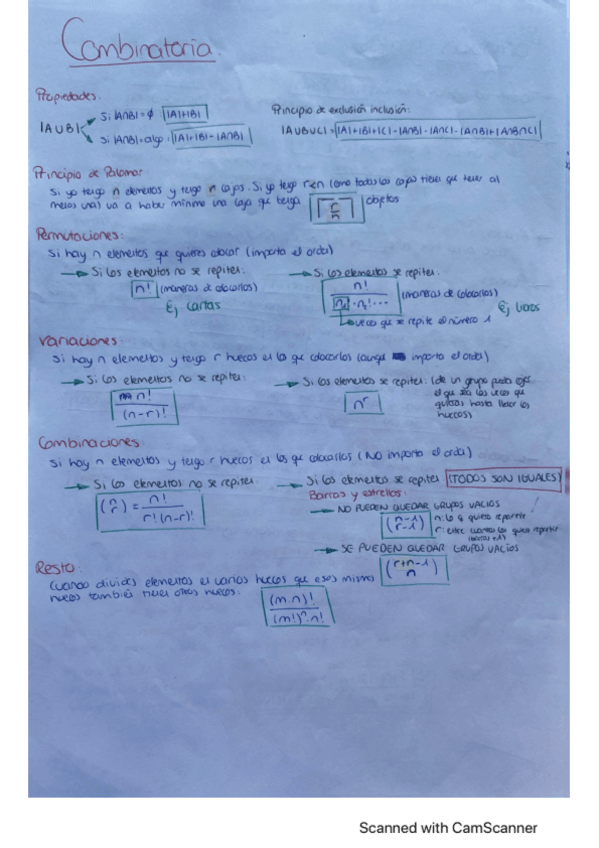 Combinatoria.
Propiedades:
|AUB|
Si |A∩B| = ∅ |A|+|B|
Si |A∩B| = algo = |A|+|B|-|A∩B|
Principio de exclusión inclusión:
|AUBUC| = |A|+|B|+|C|-|A∩B|-|A∩C|-|A∩B|+|A∩B∩C|
Principio de Palomar
Si yo tengo n elementos y tengo n cajas. Si yo tengo r en (como todas las cajas tienen que tener al
menos una) va a haber mínimo una caja que tenga objetos
Permutaciones:
Si hay n elementos que quieres colocar (importa el orden)
Si los elementos no se repiten:
n! (maneras de colocarlos)
Ej cartas
Si los elementos se repiten:
n!
(maneras de colocarlos)
Ej libros
veces que se repite el número 1
Variaciones:
Si hay n elementos y tengo r huecos en los que colocarlos (aunque importa el orden)
Si los elementos no se repiten:
n!
(n-r)!
Si los elementos se repiten: (de un grupo puedo
el que sea las veces que
quieras hasta llenar los
huecos)
n^r
Combinaciones:
Si hay n elementos y tengo r huecos en los que colocarlos (NO importa el orden)
Si los elementos no se repiten:
(n r) = n! / r!(n-r)!
Si los elementos se repiten (TODOS SON IGUALES)
Barras y estrellas:
NO PUEDEN QUEDAR GRUPOS VACIOS !
(n-1 r-1)
n: lo q quiero repartir
r: entre cuantos los quiero repartir
SE PUEDEN QUEDAR GRUPOS VACIOS
(r+n-1 n)
Resto:
Cuando divides elementos en varios huecos que esos mismos
huecos también tienen otros huecos:
(m·n)!
(m!)^n·n!
Scanned with CamScanner